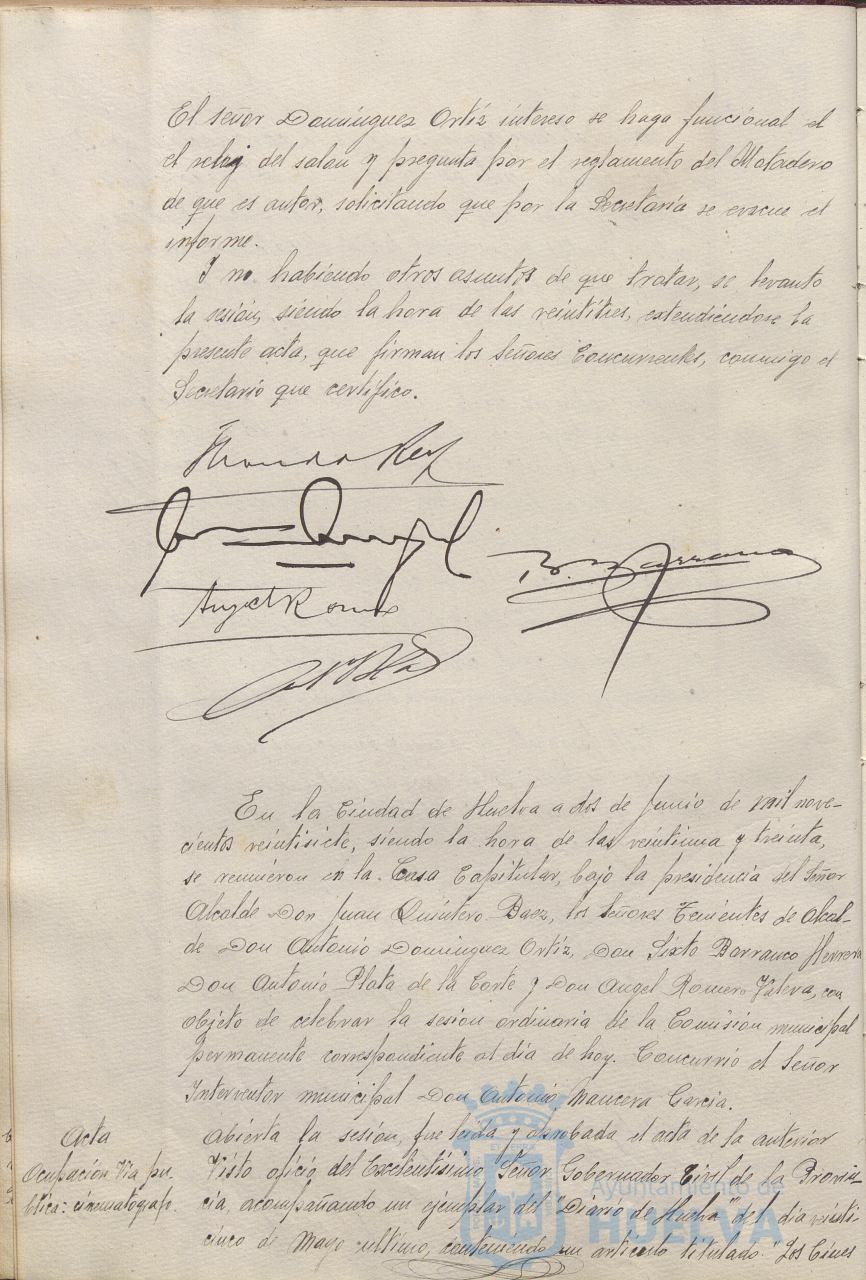 El señor Domínguez Ortíz intereso se haga funcional el
el reloj del salon y pregunta por el reglamento del Matadero
de que es autor, solicitando que por la Secretaría se evacue el
informe.
Y no habiendo otros asuntos de que tratar, se levanto
la sesión, siendo la hora de las veintitres, extendiéndose la
presente acta, que firman los Señores Concurrentes, conmigo el
Secretario que certifico.
B. Barranco
Angel Romero
En la Ciudad de Huelva a dos de Junio de mil nove-
cientos veintisiete, siendo la hora de las veintiuna y treinta,
se reunieron en la Casa Capitular, bajo la presidencia del Señor
Alcalde Don Juan Quintero Baez, los Señores Tenientes de Alcal-
de Don Antonio Domínguez Ortíz, Don Sixto Barranco Herrera
Don Antonio Plata de la Corte y Don Angel Romero, con
objeto de celebrar la sesion ordinaria de la Comisión municipal
permanente correspondiente al día de hoy. Concurrió el Señor
Interventor municipal Don Antonio Mancera García.
Acta
Abierta la sesión, fue leída y aprobada el acta de la anterior
Ocupación Vía pu-
blica: cinematografo.
Visto oficio del Excelentísimo Señor Gobernador Civil de la Provin-
cia, acompañando un ejemplar del "Diario de Huelva" del día veinti-
cinco de Mayo ultimo, conteniendo un articulo titulado "Los Cines
Ayuntamiento de
HUELVA